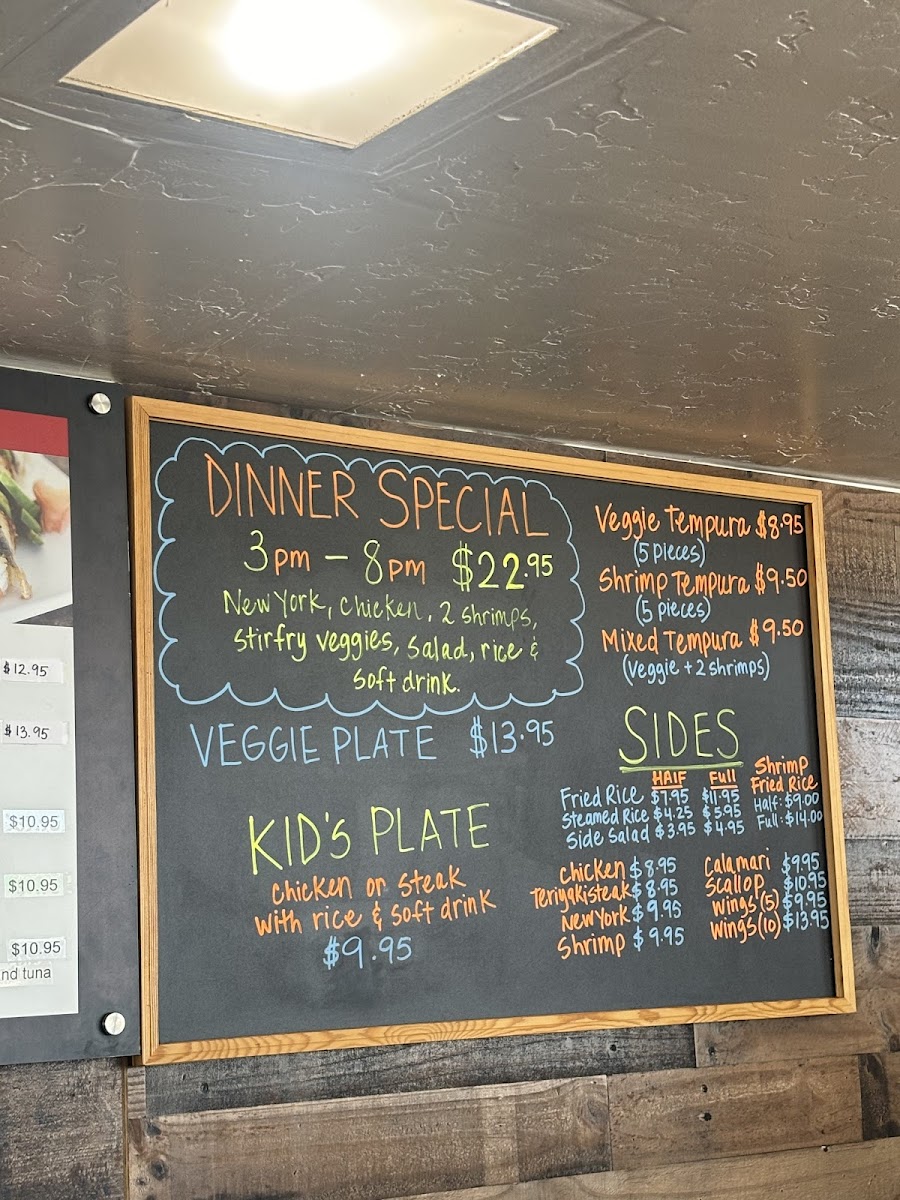 $12.95
$13.95
$10.95
$10.95
$10.95
nd tuna
DINNER SPECIAL
3pm - 8pm $22.95
New York, chicken, 2 shrimps,
stirfry veggies, salad, rice &
soft drink.
VEGGIE PLATE $13.95
KID'S PLATE
chicken or steak
with rice & soft drink
$9.95
Veggie Tempura $8.95
(5 pieces)
Shrimp Tempura $9.50
(5 pieces)
Mixed Tempura $9.50
(Veggie + 2 shrimps)
SIDES
HAlF Full
Fried Rice $7.95 $11.95
Steamed Rice $4.25 $5.95
Side Salad $3.95 $4.95
Shrimp
Fried Rice
Half: $9.00
Full: $14.00
Chicken $8.95
Teriyaki steak $8.95
New York $9.95
Shrimp $9.95
Calamari $9.95
Scallop $10.95
wings (5) $9.95
wings (10) $13.95